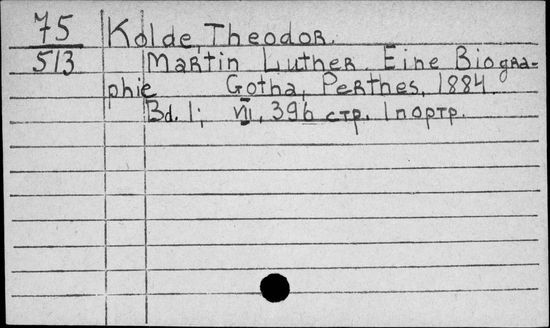 75 Kolde, Theodor.
513 Martin Luther. Eine Biogra-
phie Gotha, Perthes, 1884.
Bd. 1; VII, 396 стр. 1 портр.